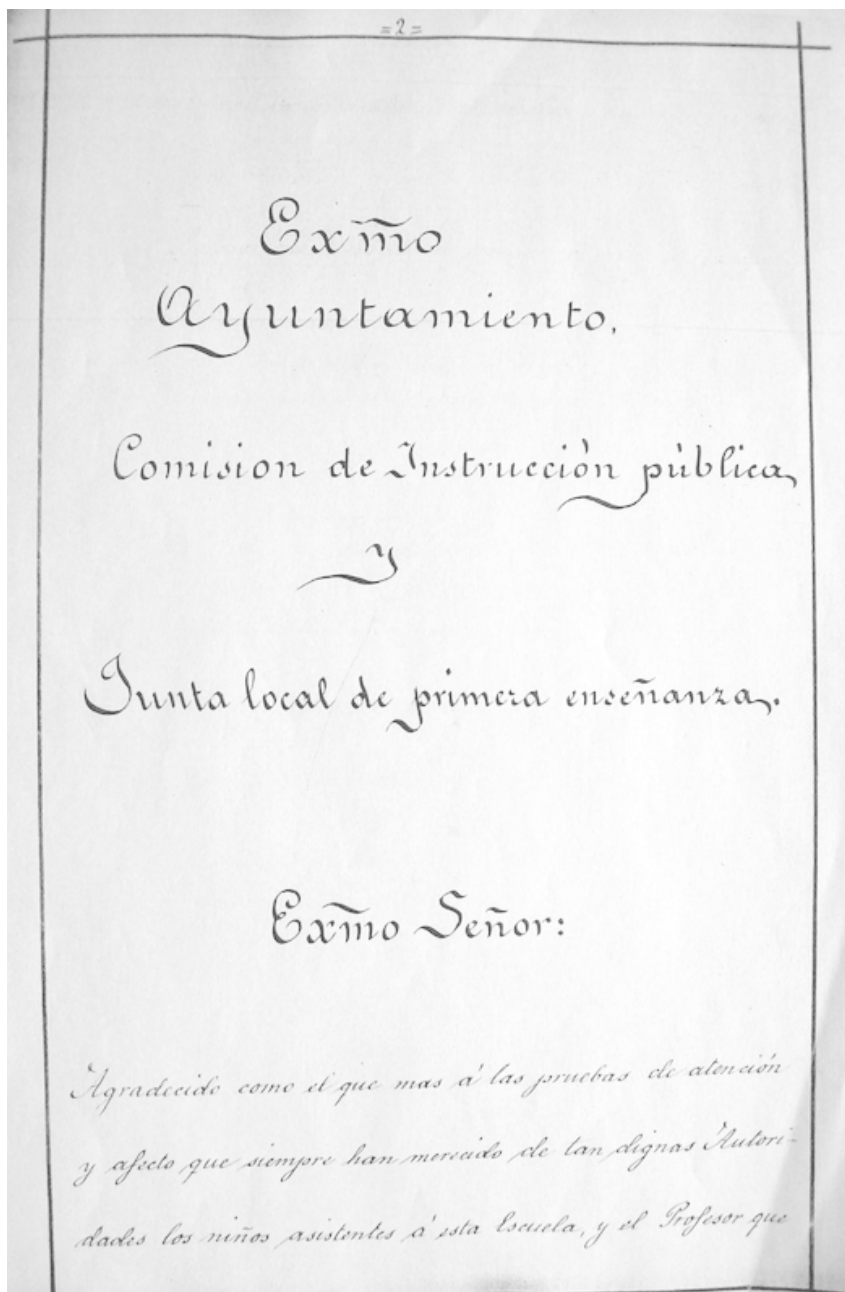 =2=
Exm̃o
Ayuntamiento.
Comision de Instrucción pública
y
Junta local de primera enseñanza.
Exm̃o Señor:
Agradecido como el que mas á las pruebas de atención
y afecto que siempre han merecido de tan dignas Autori-
dades los niños asistentes á esta Escuela, y el Profesor que